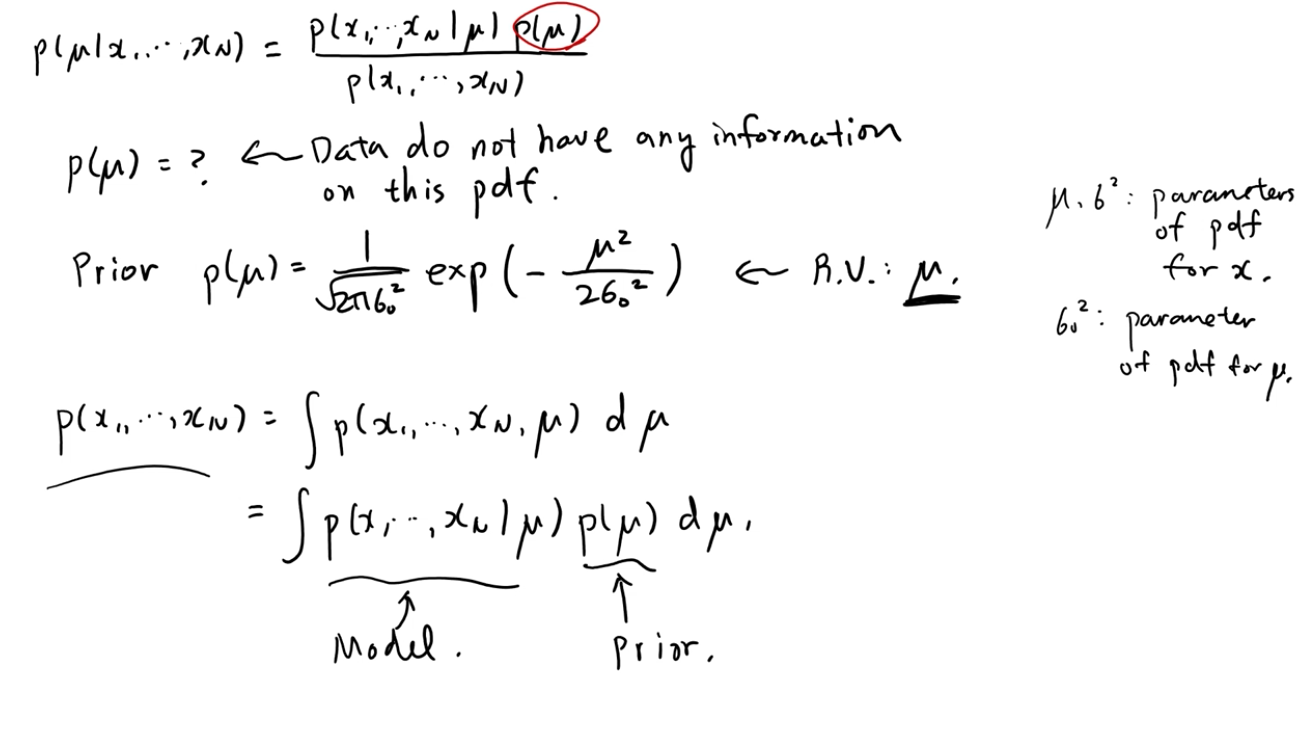 p(μ|x₁,⋯,x_N) = p(x₁,⋯,x_N|μ) p(μ) / p(x₁,⋯,x_N)
p(μ) = ? ← Data do not have any information
on this pdf.
Prior p(μ) = 1/√(2πσ₀²) exp(− μ²/2σ₀²) ← R.V.: μ.
μ, σ²: parameters
of pdf
for x.
σ₀²: parameter
of pdf for μ.
p(x₁,⋯,x_N) = ∫ p(x₁,⋯,x_N, μ) dμ
= ∫ p(x₁,⋯,x_N|μ) p(μ) dμ.
Model. Prior.